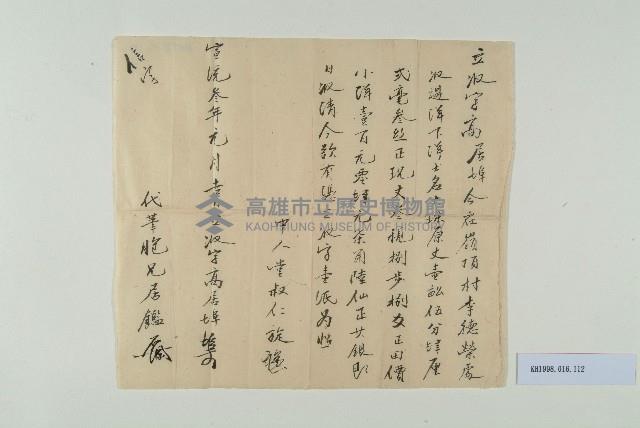 立收字高居埠今在嶺頂村李德榮處
收過洋下洋土名 原丈壹畝伍分肆厘
弍毫叁丝正現丈叁 捌步捌 正田價
小洋壹百元零 元 角陸仙正其銀即
日收清今欲有 立收字壹紙為照
中人堂叔仁旋
宣統叁年元月 立收字高居埠
代筆胞兄居鑑
高雄市立歷史博物館
KAOHSIUNG MUSEUM OF HISTORY
KH1998.016.112